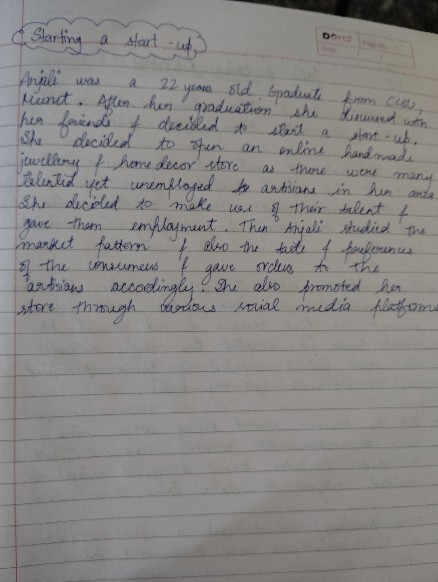 Starting a start-up
DOMS
Page No.
Date
Anjali was a 22 years old graduate from CCSU,
Meerut. After her graduation she discussed with
her friends & decided to start a start-up.
She decided to open an online handmade
jewellery & home decor store as there were many
talented yet unemployed artisians in her area
She decided to make use of their talent &
gave them employment. Then Anjali studied the
market pattern & also the taste & preferences
of the consumers & gave orders to the
artisians accordingly. She also promoted her
store through various social media platforms